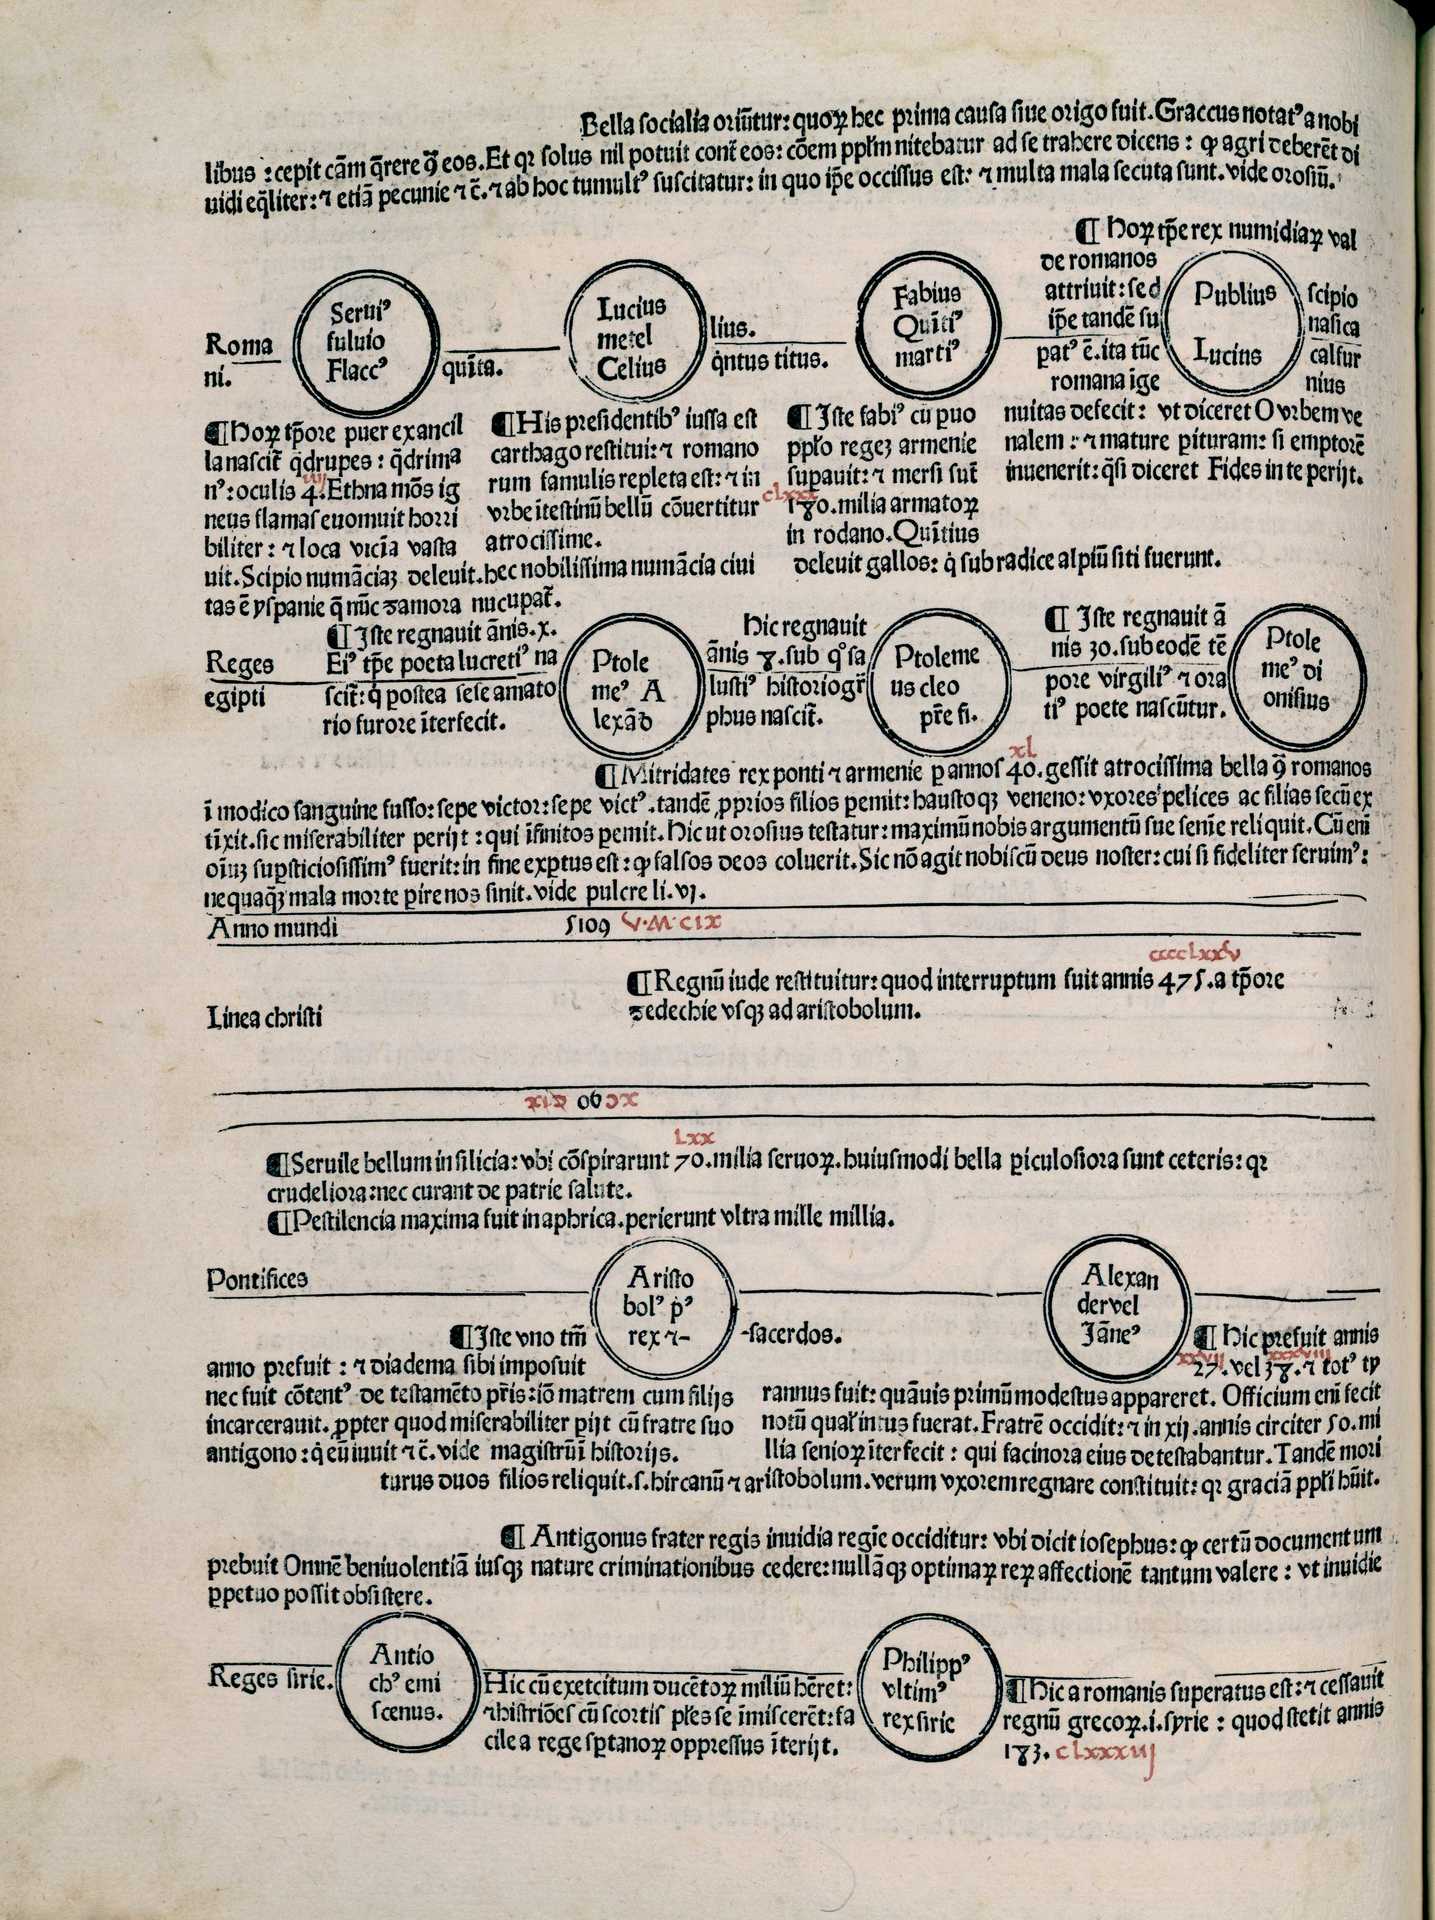 Bella socialia oriūtur: quoꝝ hec prima causa siue origo fuit. Graccus notatꝰ a nobi
libus : cepit cām q̄rere ꝯ̄ eos. Et qꝛ solus nil potuit cont̄ eos: cōem ppl̄m nitebatur ad se trahere dicens : ꝙ agri deberēt di
uidi eq̄liter: ⁊ etiā pecunie ⁊ c̄. ⁊ ab hoc tumultꝰ suscitatur: in quo ip̄e occissus est: ⁊ multa mala secuta sunt. vide orosiū.
¶ Hoꝝ tp̄e rex numidiaꝝ val
de romanos
attriuit: sed
ip̄e tandē su
patꝰ ē. ita tūc
romana ige
nuitas defecit: vt diceret O vrbem ve
nalem : ⁊ mature pituram: si emptorē
inuenerit: q̄si diceret Fides in te perijt.
Roma
ni.
Seruiꝰ
fuluio
Flaccꝰ
quīta.
Lucius
metel
Celius
lius.
q̄ntus titus.
Fabius
Quītiꝰ
martiꝰ
Publius
Lucius
scipio
nasica
calfur
nius
¶ Hoꝝ tp̄ore puer ex ancil
la nascit̄ q̄drupes : q̄drima
nꝰ: oculis 4. Ethna mōs ig
iiij
neus flamas euomuit horri
biliter: ⁊ loca vicīa vasta
uit. Scipio numāciaꝫ deleuit. hec nobilissima numācia ciui
tas ē yspanie q̄ nūc zamora nucupat̄.
¶ His presidentibꝰ iussa est
carthago restitui: ⁊ romano
rum famulis repleta est: ⁊ in
vrbe ītestinū bellū cōuertitur
atrocissime.
¶ Iste fabiꝰ cū puo
ppl̄o regeꝫ armenie
supauit: ⁊ mersi sūt
clxxx
180. milia armatoꝝ
in rodano. Quītius
deleuit gallos: q̄ sub radice alpiū siti fuerunt.
Reges
egipti
¶ Iste regnauit ānis. x.
Eiꝰ tp̄e poeta lucretiꝰ na
scit̄: q̄ postea sese amato
rio furore īterfecit.
Ptole
meꝰ A
lexād
Hic regnauit
ānis 8. sub qͦ sa
lustiꝰ historiogr̄
phus nascit̄.
Ptoleme
us cleo
pr̄e fi.
¶ Iste regnauit ā
nis 30. sub eodē tē
pore virgiliꝰ ⁊ ora
tiꝰ poete nascūtur.
Ptole
meꝰ di
onisius
xl
¶ Mitridates rex ponti ⁊ armenie p annos 40. gessit atrocissima bella ꝯ̄ romanos
ī modico sanguine fusso: sepe victor: sepe victꝰ. tandē pprios filios pemit: haustoqꝫ veneno: vxores pelices ac filias secū ex
tīxit. sic miserabiliter perijt : qui īfinitos pemit. Hic ut orosius testatur: maximū nobis argumentū sue senīe reliquit. Cū enī
oīuꝫ supsticiosissimꝰ fuerit: in fine exptus est: ꝙ falsos deos coluerit. Sic nō agit nobiscū deus noster: cui si fideliter seruimꝰ:
nequaq̄ꝫ mala morte pire nos sinit. vide pulcre li. vj.
Anno mundi 5109 V.M.CIX
cccclxxv
¶ Regnū iude restituitur: quod interruptum fuit annis 475. a tp̄ore
zedechie vsqꝫ ad aristobolum.
Linea christi
90
lxx
¶ Seruile bellum in silicia: vbi cōspirarunt 70. milia seruoꝝ. huiusmodi bella piculosiora sunt ceteris: qꝛ
crudeliora: nec curant de patrie salute.
¶ Pestilencia maxima fuit in aphrica. perierunt vltra mille millia.
Pontifices
Aristo
bolꝰ p̄ꝰ
rex ⁊-
-sacerdos.
Alexan
der vel
Iāneꝰ
¶ Iste vno tm̄
anno prefuit : ⁊ diadema sibi imposuit
nec fuit cōtentꝰ de testamēto pr̄is: iō matrem cum filijs
incarcerauit. ppter quod miserabiliter pijt cū fratre suo
antigono : q̄ eū iuuit ⁊ c̄. vide magistrū ī historijs.
¶ Hic prefuit annis
xxvij xxxviij
27. vel 38. ⁊ totꝰ ty
rannus fuit: quāuis primū modestus appareret. Officium enī fecit
notū qual̄ intus fuerat. Fratrē occidit: ⁊ in xij. annis circiter 50. mi
llia senioꝝ īterfecit : qui facinora eius detestabantur. Tandē mori
turus duos filios reliquit. s. hircanū ⁊ aristobolum. verum vxorem regnare constituit: qꝛ graciā ppl̄i hūit.
¶ Antigonus frater regis inuidia regīe occiditur: vbi dicit iosephus: ꝙ certū documentum
prebuit Omnē beniuolentiā iusqꝫ nature criminationibus cedere: nullāqꝫ optimaꝝ reꝝ affectionē tantum valere : vt inuidie
ppetuo possit obsistere.
Reges sirie.
Antio
chꝰ emi
scenus.
Hic cū exetcitum ducētoꝝ miliū hēret:
⁊ histriōes cū scortis pl̄es se īmiscerēt: fa
cile a rege sptanoꝝ oppressus īterijt.
Philippꝰ
vltimꝰ
rex sirie
¶ Hic a romanis superatus est: ⁊ cessauit
regnū grecoꝝ. i. syrie : quod stetit annis
183. clxxxiij